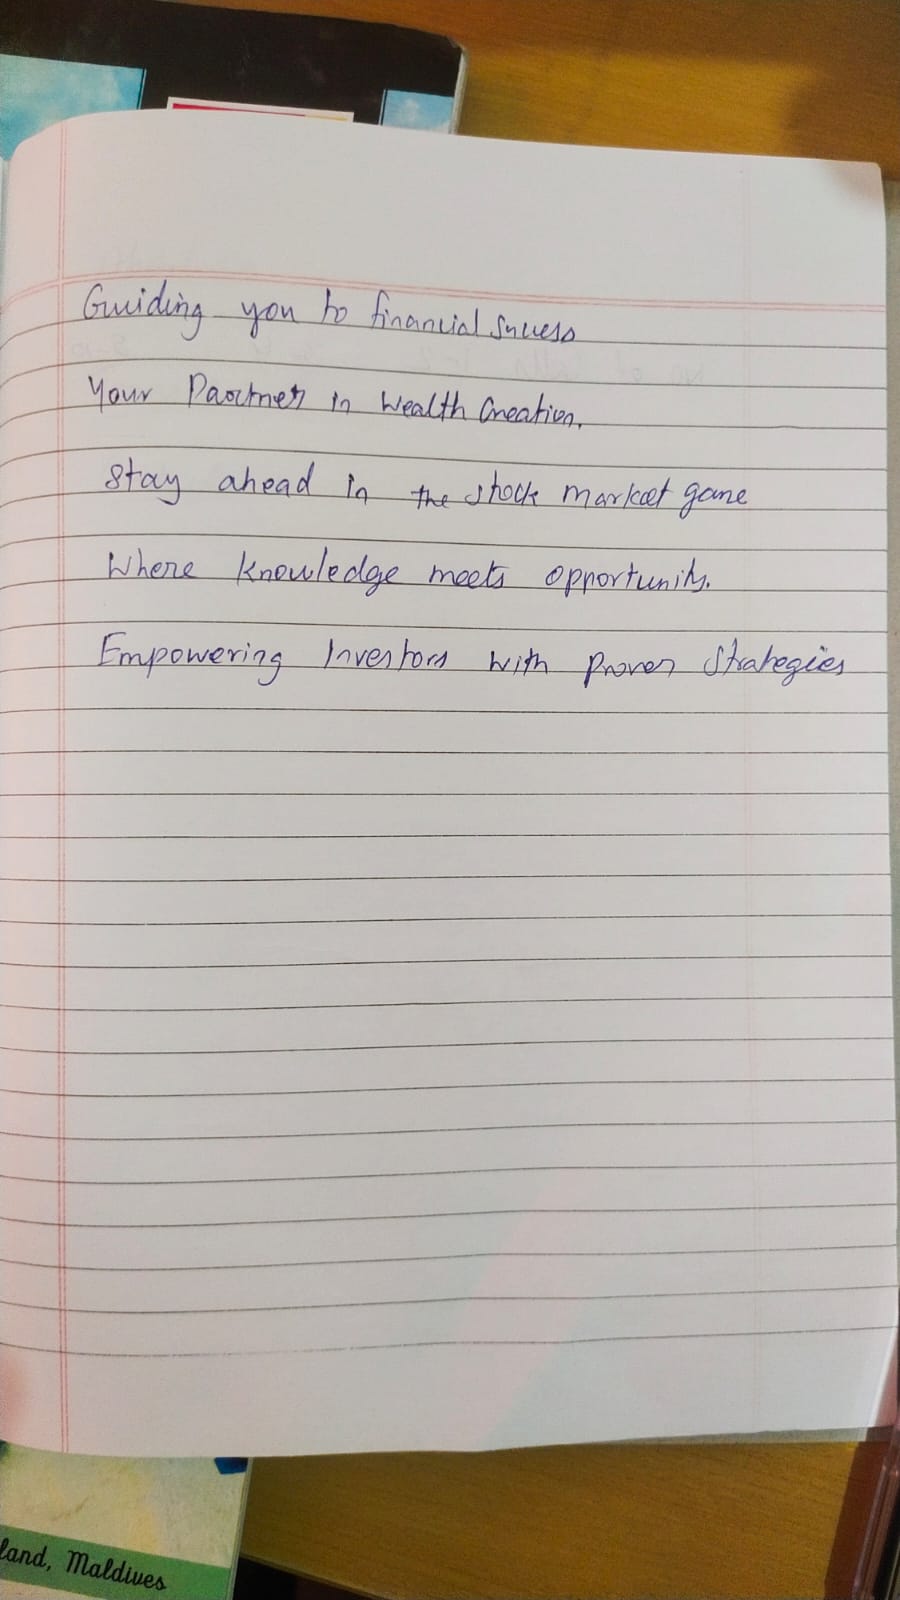 Guiding you to financial success
Your Partner in Wealth Creation.
Stay ahead in the stock market game
Where knowledge meets opportunity.
Empowering Investors with proven Strategies
land, Maldives